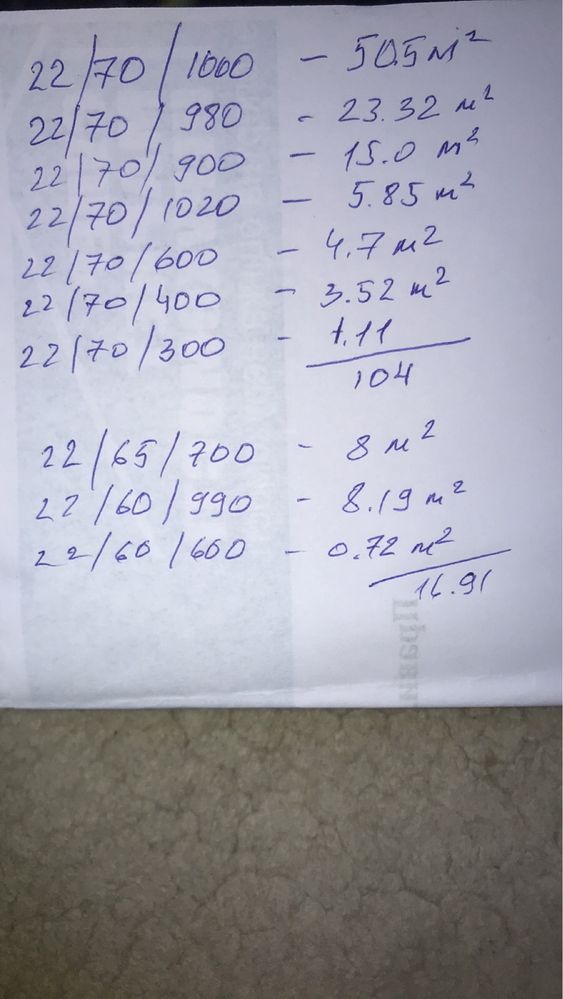 22/70/1000 - 50.5 м²
22/70/980 - 23.32 м²
22/70/900 - 15.0 м²
22/70/1020 - 5.85 м²
22/70/600 - 4.7 м²
22/70/400 - 3.52 м²
22/70/300 - 1.11
104
22/65/700 - 8 м²
22/60/990 - 8.19 м²
22/60/600 - 0.72 м²
16.91